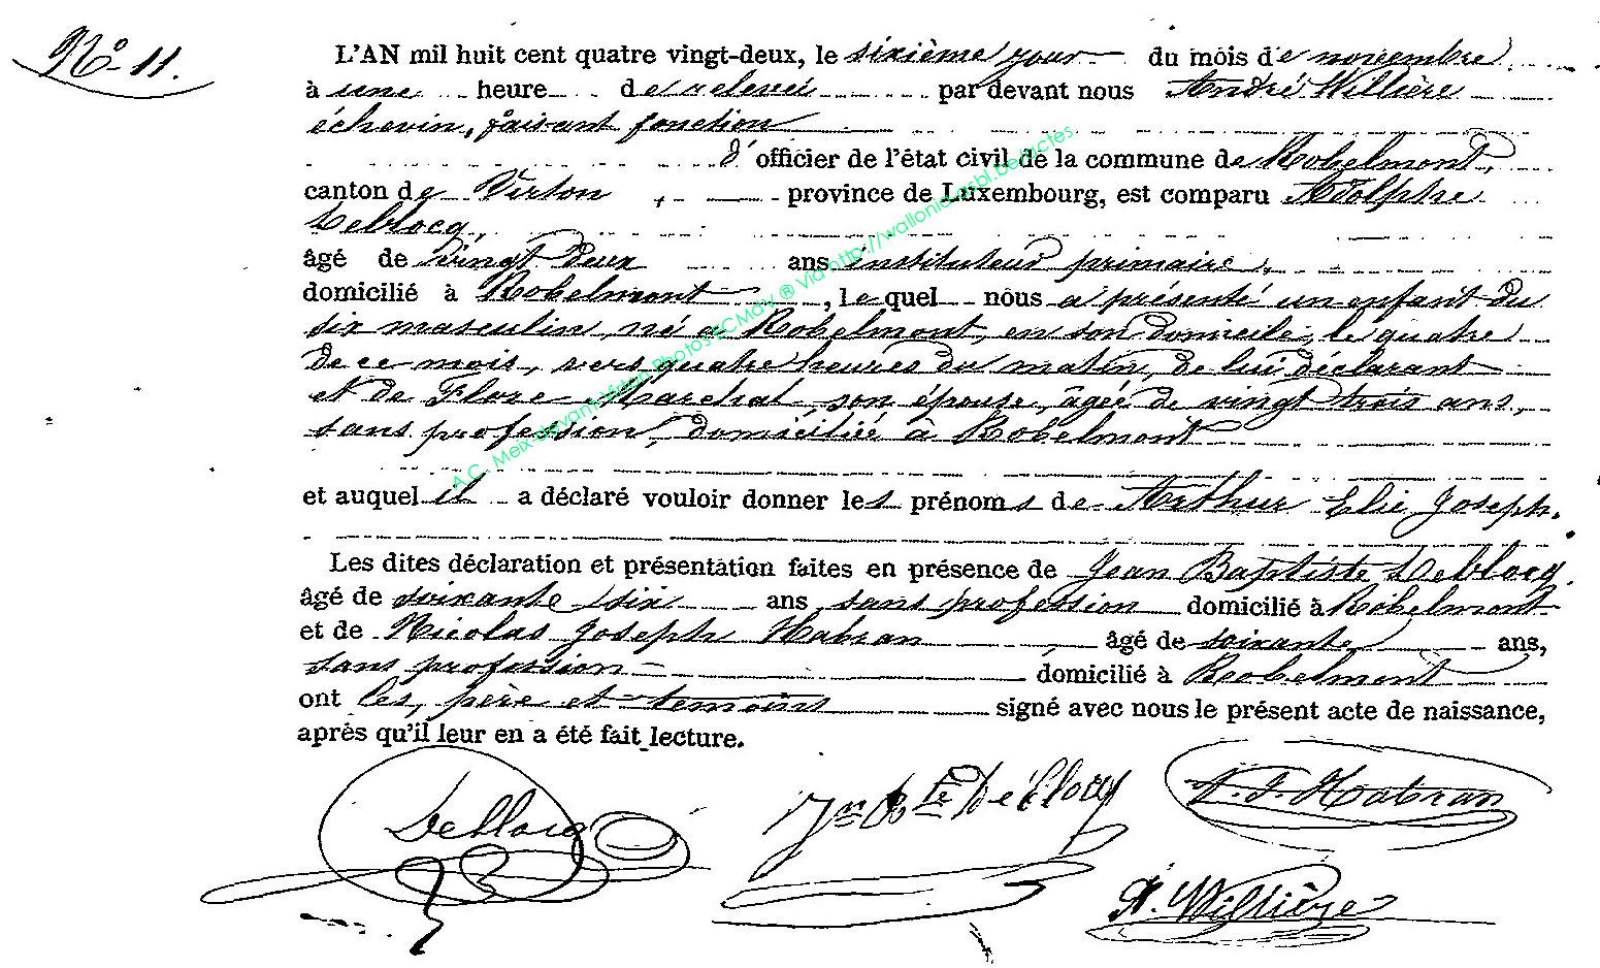 N° 11.
L'AN mil huit cent quatre vingt-deux, le sixième jour du mois de novembre
à une heure de relevée par devant nous André Willière
échevin, faisant fonction
d'officier de l'état civil de la commune de Robelmont,
canton de Virton, province de Luxembourg, est comparu Adolphe
Deblocq,
âgé de vingt deux ans instituteur primaire,
domicilié à Robelmont, lequel nous a présenté un enfant du
six masculin, né à Robelmont, en son domicile, le quatre
de ce mois, vers quatre heures du matin, de lui déclarant
et de Flore Marchal, son épouse, âgée de vingt trois ans,
sans profession, domiciliée à Robelmont
et auquel il a déclaré vouloir donner les prénoms de Arthur Elie Joseph.
Les dites déclaration et présentation faites en présence de Jean Baptiste Deblocq.
âgé de soixante six ans, sans profession domicilié à Robelmont
et de Nicolas Joseph Habran âgé de soixante ans,
sans profession domicilié à Robelmont
ont les, père et témoins signé avec nous le présent acte de naissance,
après qu'il leur en a été fait lecture.
Deblocq Jn Bte Déblocq N. J. Habran
A. Willière
A.C. Meix-devant-Virton Photos ECMdV ® Via http://wallonia-asbl.be/actes